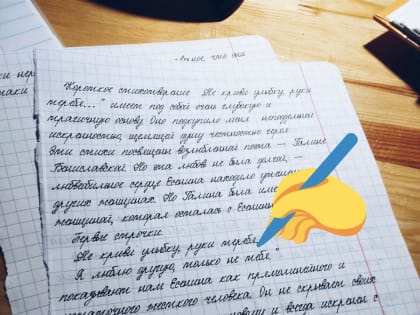 - Самое, что они
Короткое стихотворение „Не криви улыбку, руки
теребя..." имеет под собой очень глубокую и
трагичную основу. Оно подкупило меня неподдельной
искренностью, щемящей душу честностью героя
Эти стихи посвящены возлюбленной поэта – Галине
Бениславской. Но эта любовь не была долгой, –
любвеобильное сердце Есенина находило утешение
других женщинах. Но Галина была
женщиной, которая осталась с Есениным
Первые строчки:
„Не криви улыбку, руки теребя,
Я люблю другую, только не тебя"
показывают нам Есенина как прямолинейного и
жесткого человека. Он не скрывает своих
и всегда искренен с